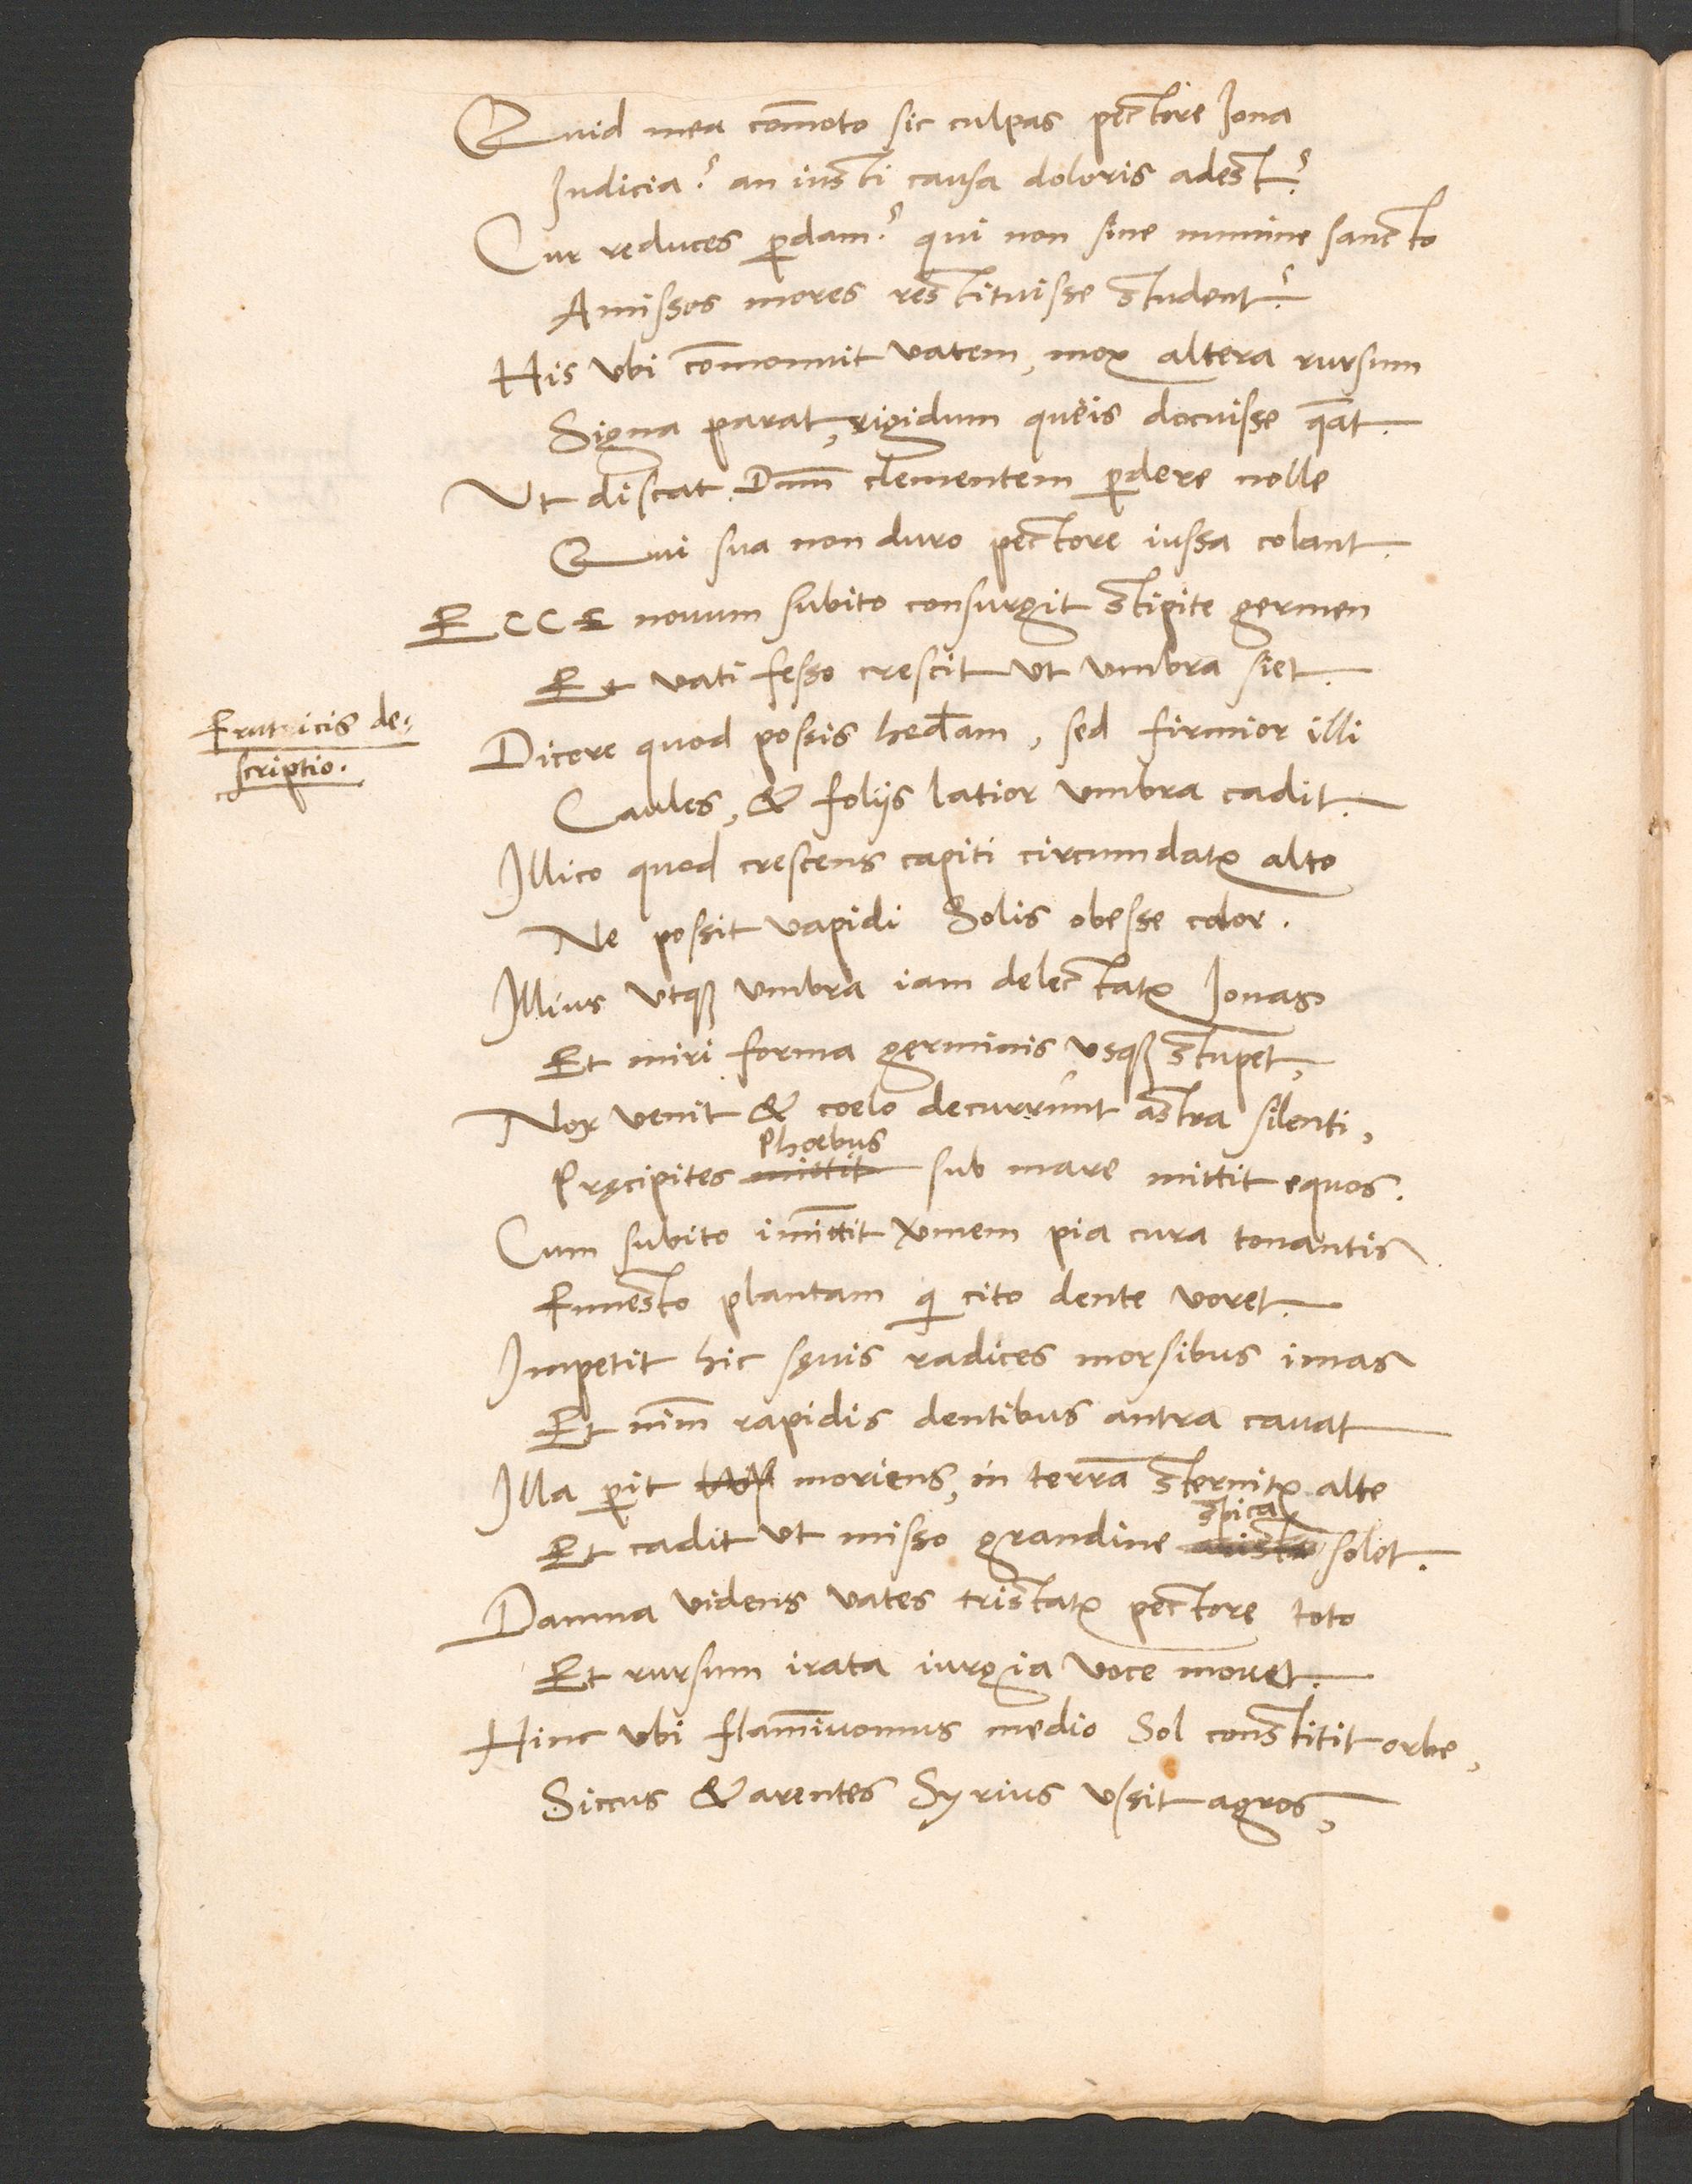 Quid mea com̄oto sic culpas pectore Iona
Iudicia? an iusti causa doloris adest?
Cur reduces ꝑdam? qui non sine numine sancto
Amissos mores restituisse student?
His ubi com̄onuit vatem, mox altera rursum
Signa parat, rigidum quëis docuisse q̄at.
Ut discat Dūm clementem ꝑdere nolle
Qui sua non duro pectore iussa colant.
ECCE novum subito consurgit stipite germen
Et vati fesso crescit ut umbra siet.
Fruticis de-
scriptio.
Dicere quod possis hed̄am, sed firmior illi
Caules, & folijs latior umbra cadit.
Illico quod crescens capiti circumdatꝛ alto
Ne possit vapidi Solis obesse color.
Illius utqꝫ umbra iam delectatꝛ Ionas
Et miri forma germinis usqꝫ stupet,
Nox venit & coelo decurrunt astra silenti,
Phœbus
Pręcipites mittit sub mare mittit equos.
Cum subito im̄ittit v̄mem pia cura tonantis
Funesto plantam q̇ cito dente voret.
Impetit hic sęvis radices morsibus imas
Et nim̄ rapidis dentibus antra cavat
Illa ꝑit moriens, in terrā sternitꝛ alte
spica
Et cadit ut misso grandine arista solet.
Damna videns vates tristatꝛ pectore toto
Et rursum irata iurgia voce movet.
Hinc ubi flam̄ivomus medio Sol constitit orbe,
Siccus & arentes Syrius ussit agros,